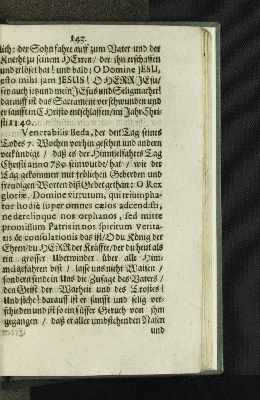 142.
lich: der Sohn fahre auff zum Vater und der
Knecht zu seinem HErren / der ihn erschaffen
und erlöset hat! und bald; O Domine JESU,
esto mihi jam JESUS! O HERR JEsu/
sey auch jetzund mein JEsus und Seligmacher!
darauff ist das Sacrament verschwunden und
er sanfft in CHristo entschlaffen/im Jahr-Chri-
sti 1140.
Venerabilis Beda, der den Tag seines
Todes 7. Wochen vorhin gesehen und andern
verkündiget / daß es der Himmelfahrts Tag
Christi anno 789. sein wurde/ hat / wie der
Tag gekommen mit frölichen Geberden und
freudigen Worten diß Gebet gethan: O Rex
gloriæ, Domine virtutum, qui triumpha-
tor hodiè super omnes cœlos adcendisti,
ne derelinque nos orphanos, sed mitte
promissum Patris in nos spiritum verita-
tis & consolationis das ist/ O du König der
Ehren/du HERR der Kräffte/ der du heut als
ein grosser Uberwinder über alle Him-
mel gefahren bist / lasse uns nicht Waisen /
sondern sende in Uns die Zusage des Vaters/
den Geist der Warheit und des Trostes!
Und siehe! darauff ist er sanfft und selig ver-
schieden und ist so ein süsser Geruch von ihm
gegangen / daß er aller umbstehenden Nasen
und